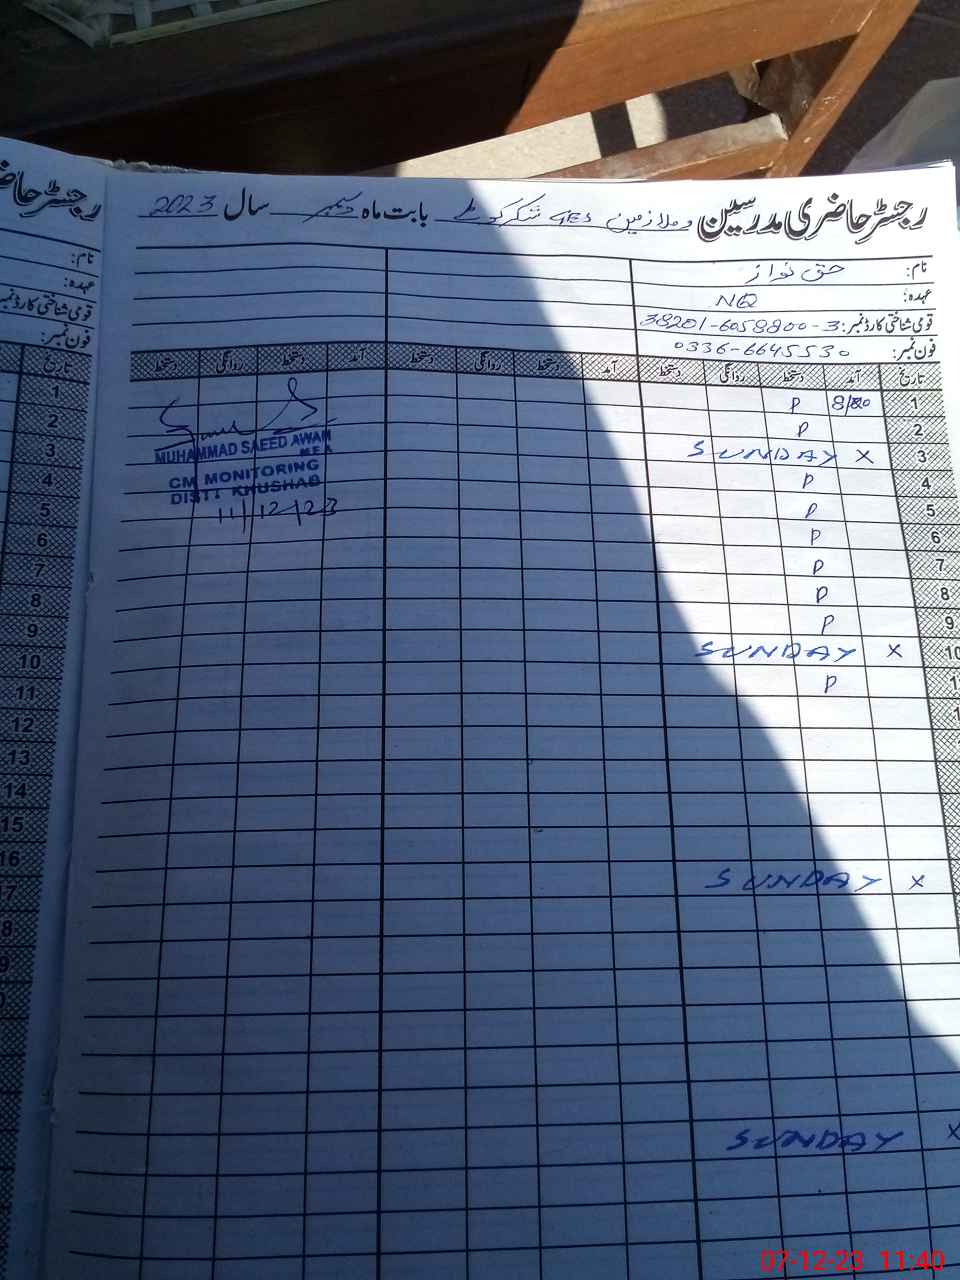 رجسٹر حاضری مدرسین و ملازمین GES بابت ماہ دسمبر سال 2023
نام: حق نواز
عہدہ: NQ
قومی شناختی کارڈ نمبر: 38201-6058800-3
فون نمبر: 0336-6645530
تاریخ آمد دستخط روانگی دستخط آمد دستخط روانگی دستخط آمد دستخط روانگی دستخط
1 P
2 P
3 X SUNDAY
4 P
5 P
6 P
7 P
8 P
9 P
10 X SUNDAY
P
X SUNDAY
X SUNDAY
MUHAMMAD SAEED AWAN
MEA
CM MONITORING
DISTT KHUSHAB
11/12/23
رجسٹر حاض
نام:
عہدہ:
قومی شناختی کارڈ نمبر
فون نمبر:
تاریخ
1
2
3
4
5
6
7
8
9
10
11
12
13
14
15
16
07-12-23 11:40